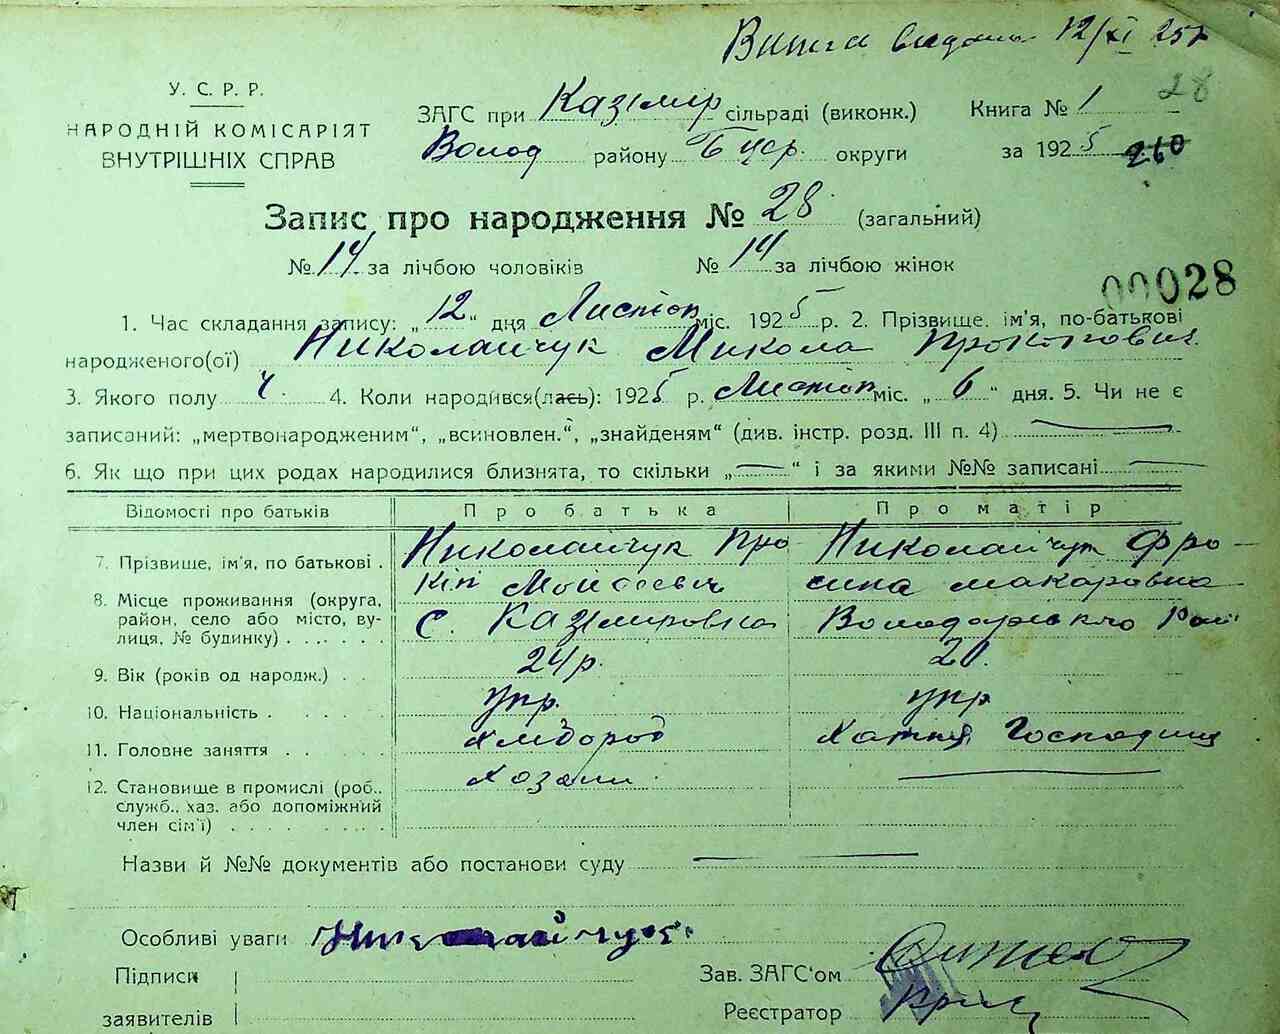 Витяг видано 12/XI 25 р
У. С. Р. Р.
НАРОДНІЙ КОМІСАРІЯТ
ВНУТРІШНІХ СПРАВ
ЗАГС при Казімір сільраді (виконк.) Книга № 1 28
Волод району Б Цер. округи за 1925 260
Запис про народження № 28 (загальний)
№ 14 за лічбою чоловіків № 14 за лічбою жінок
00028
1. Час складання запису: „12“ дня Листоп міс. 1925 р. 2. Прізвище, ім'я, по-батькові
народженого(ої) Николайчук Микола Прокопович
3. Якого полу ч. 4. Коли народився(лась): 1925 р. Листоп міс. „6“ дня. 5. Чи не є
записаний: „мертвонародженим“, „всиновлен.“, „знайденям“ (див. інстр. розд. III п. 4)
6. Як що при цих родах народилися близнята, то скільки „—“ і за якими №№ записані —
Відомості про батьків Про батька Про матір
7. Прізвище, ім'я, по батькові . Николайчук Про- Николайчук Фро-
кіп Мойсеєвич сина Макаровна
8. Місце проживання (округа,
район, село або місто, ву-
лиця, № будинку) . . . . . с. Казімировка Володарського
9. Вік (років од народж.) . . 24 р. 20.
10. Національність . . . . . . укр. укр
11. Головне заняття . . Хлібороб Хатня Господиня
12. Становище в промислі (роб.,
служб., хаз. або допоміжний
член сім'ї) . . . . . . . . Хозаин
Назви й №№ документів або постанови суду
Особливі уваги Николайчук.
Підписи
заявителів
Зав. ЗАГС'ом
Реєстратор